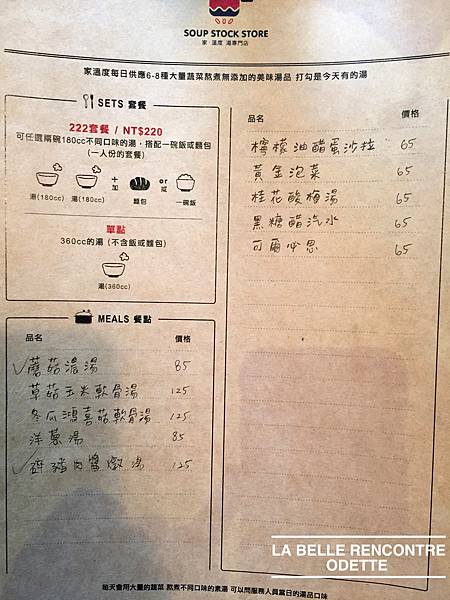 SOUP STOCK STORE
家 溫度 湯專門店
家溫度每日供應6-8種大量蔬菜熬煮無添加的美味湯品 打勾是今天有的湯
SETS 套餐
222套餐 / NT$220
可任選兩碗180cc不同口味的湯,搭配一碗飯或麵包
(一人份的套餐)
+ or
加 或
湯(180cc) 湯(180cc) 麵包 一碗飯
單點
360cc的湯 (不含飯或麵包)
湯(360cc)
MEALS 餐點
品名 價格
✓蘑菇濃湯 85
草菇玉米軟骨湯 125
冬瓜鴻喜菇軟骨湯 125
洋蔥湯 85
✓ 豬肉醬燉湯 125
品名 價格
檸檬油醋蛋沙拉 65
黃金泡菜 65
桂花酸梅湯 65
黑糖醋汽水 65
可爾必思 65
每天會用大量的蔬菜 熬煮不同口味的素湯 可以問服務人員當日的湯品口味
LA BELLE RENCONTRE
ODETTE